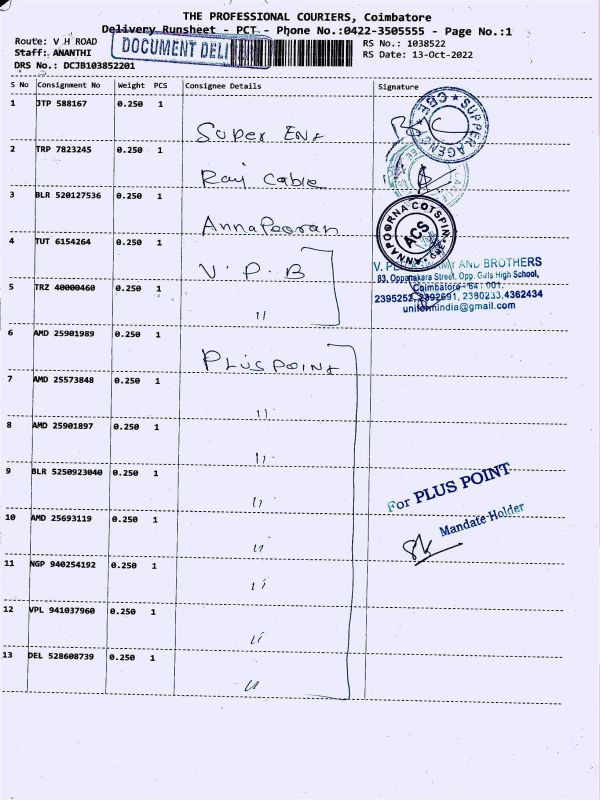 THE PROFESSIONAL COURIERS, Coimbatore
Delivery Runsheet - PCT - Phone No.:0422-3505555 - Page No.:1
Route: V H ROAD
Staff: ANANTHI
DRS No.: DCJB103852201
DOCUMENT DELI
RS No.: 1038522
RS Date: 13-Oct-2022
S No Consignment No Weight PCS Consignee Details Signature
1 JTP 588167 0.250 1
Super Ent
SUPPER AGENCY ★ CBE ★
2 TRP 7823245 0.250 1
Raj Cable
3 BLR 520127536 0.250 1
AnnaPooran
ANNAPOORNA COTSPIN
ACS
4 TUT 6154264 0.250 1
V. P. B
AND BROTHERS
83, Oppanakara Street, Opp. Girls High School,
Coimbatore - 641 001.
2395252, 2392691, 2380233, 4362434
uniformindia@gmail.com
5 TRZ 40000460 0.250 1
11
6 AMD 25901989 0.250 1
PLUS POINT
7 AMD 25573848 0.250 1
11
8 AMD 25901897 0.250 1
11
9 BLR 5250923040 0.250 1
11
For PLUS POINT
Mandate Holder
10 AMD 25693119 0.250 1
11
11 NGP 940254192 0.250 1
11
12 VPL 941037960 0.250 1
11
13 DEL 528608739 0.250 1
11